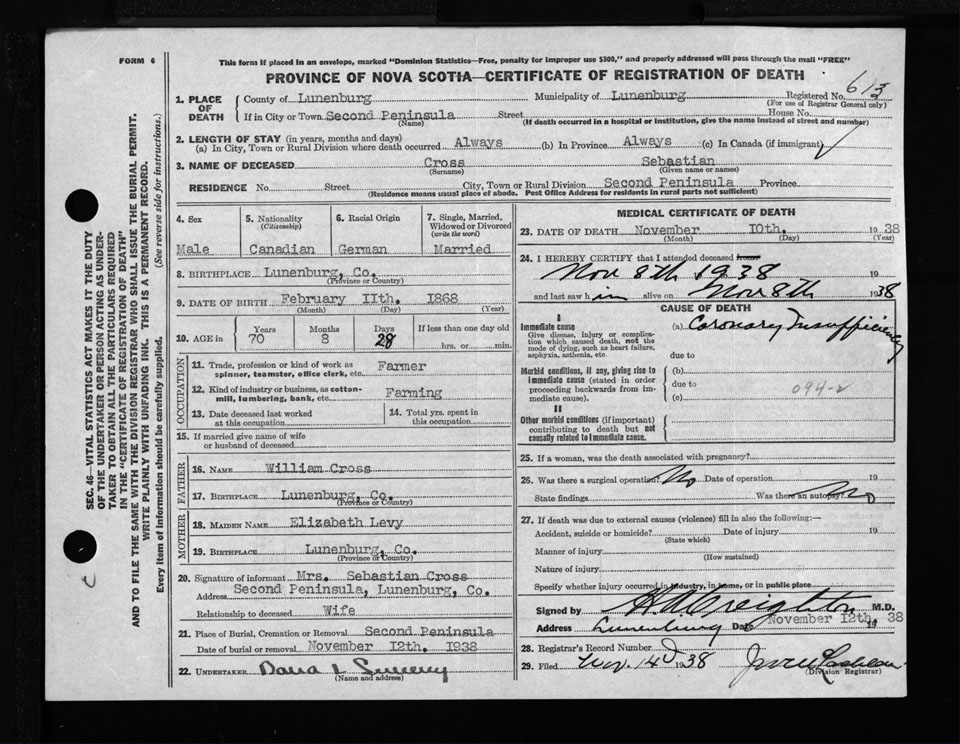 FORM 6
This form if placed in an envelope, marked "Dominion Statistics—Free, penalty for improper use $300," and properly addressed will pass through the mail "FREE"
PROVINCE OF NOVA SCOTIA—CERTIFICATE OF REGISTRATION OF DEATH
613
1. PLACE OF DEATH
County of Lunenburg Municipality of Lunenburg Registered No.
(For use of Registrar General only)
If in City or Town Second Peninsula Street House No.
(Name) (If death occurred in a hospital or institution, give the name instead of street and number)
2. LENGTH OF STAY (in years, months and days)
(a) In City, Town or Rural Division where death occurred Always (b) In Province Always (c) In Canada (if immigrant)
3. NAME OF DECEASED Cross Sebastian
(Surname) (Given name or names)
RESIDENCE No. Street City, Town or Rural Division Second Peninsula Province
(Residence means usual place of abode. Post Office Address for residents in rural parts not sufficient)
4. Sex
Male
5. Nationality
(Citizenship)
Canadian
6. Racial Origin
German
7. Single, Married, Widowed or Divorced
(write the word)
Married
8. BIRTHPLACE Lunenburg, Co.
(Province or Country)
9. DATE OF BIRTH February 11th. 1868
(Month) (Day) (Year)
10. AGE in
Years Months Days If less than one day old
70 8 28 hrs. or min.
OCCUPATION
11. Trade, profession or kind of work as spinner, teamster, office clerk, etc. Farmer
12. Kind of industry or business, as cotton-mill, lumbering, bank, etc. Farming
13. Date deceased last worked at this occupation
14. Total yrs. spent in this occupation
15. If married give name of wife or husband of deceased
FATHER
16. NAME William Cross
17. BIRTHPLACE Lunenburg, Co.
(Province or Country)
MOTHER
18. MAIDEN NAME Elizabeth Levy
19. BIRTHPLACE Lunenburg, Co.
(Province or Country)
20. Signature of informant Mrs. Sebastian Cross
Address Second Peninsula, Lunenburg, Co.
Relationship to deceased Wife
21. Place of Burial, Cremation or Removal Second Peninsula
Date of burial or removal November 12th. 1938
22. UNDERTAKER
(Name and address)
MEDICAL CERTIFICATE OF DEATH
23. DATE OF DEATH November 10th. 1938
(Month) (Day) (Year)
24. I HEREBY CERTIFY that I attended deceased from
Nov 8th 1938 19
and last saw him alive on Nov 8th 1938
CAUSE OF DEATH
I
Immediate cause
Give disease, injury or complication which caused death, not the mode of dying, such as heart failure, asphyxia, asthenia, etc.
(a) Coronary Insufficiency
due to
Morbid conditions, if any, giving rise to immediate cause (stated in order proceeding backwards from immediate cause).
(b)
due to
(c)
094-2
II
Other morbid conditions (if important) contributing to death but not causally related to immediate cause.
25. If a woman, was the death associated with pregnancy?
26. Was there a surgical operation? No Date of operation 19
State findings Was there an autopsy? No
27. If death was due to external causes (violence) fill in also the following:—
Accident, suicide or homicide? Date of injury 19
(State which)
Manner of injury
(How sustained)
Nature of injury
Specify whether injury occurred in industry, in home, or in public place
Signed by H. A. Creighton M.D.
Address Lunenburg Date November 12th. 1938
28. Registrar's Record Number
29. Filed Nov. 14 1938
(Division Registrar)
SEC. 46—VITAL STATISTICS ACT MAKES IT THE DUTY
OF THE UNDERTAKER OR PERSON ACTING AS UNDER-
TAKER TO OBTAIN ALL THE PARTICULARS REQUIRED
IN THE "CERTIFICATE OF REGISTRATION OF DEATH"
AND TO FILE THE SAME WITH THE DIVISION REGISTRAR WHO SHALL ISSUE THE BURIAL PERMIT.
WRITE PLAINLY WITH UNFADING INK. THIS IS A PERMANENT RECORD.
Every item of information should be carefully supplied. (See reverse side for instructions.)